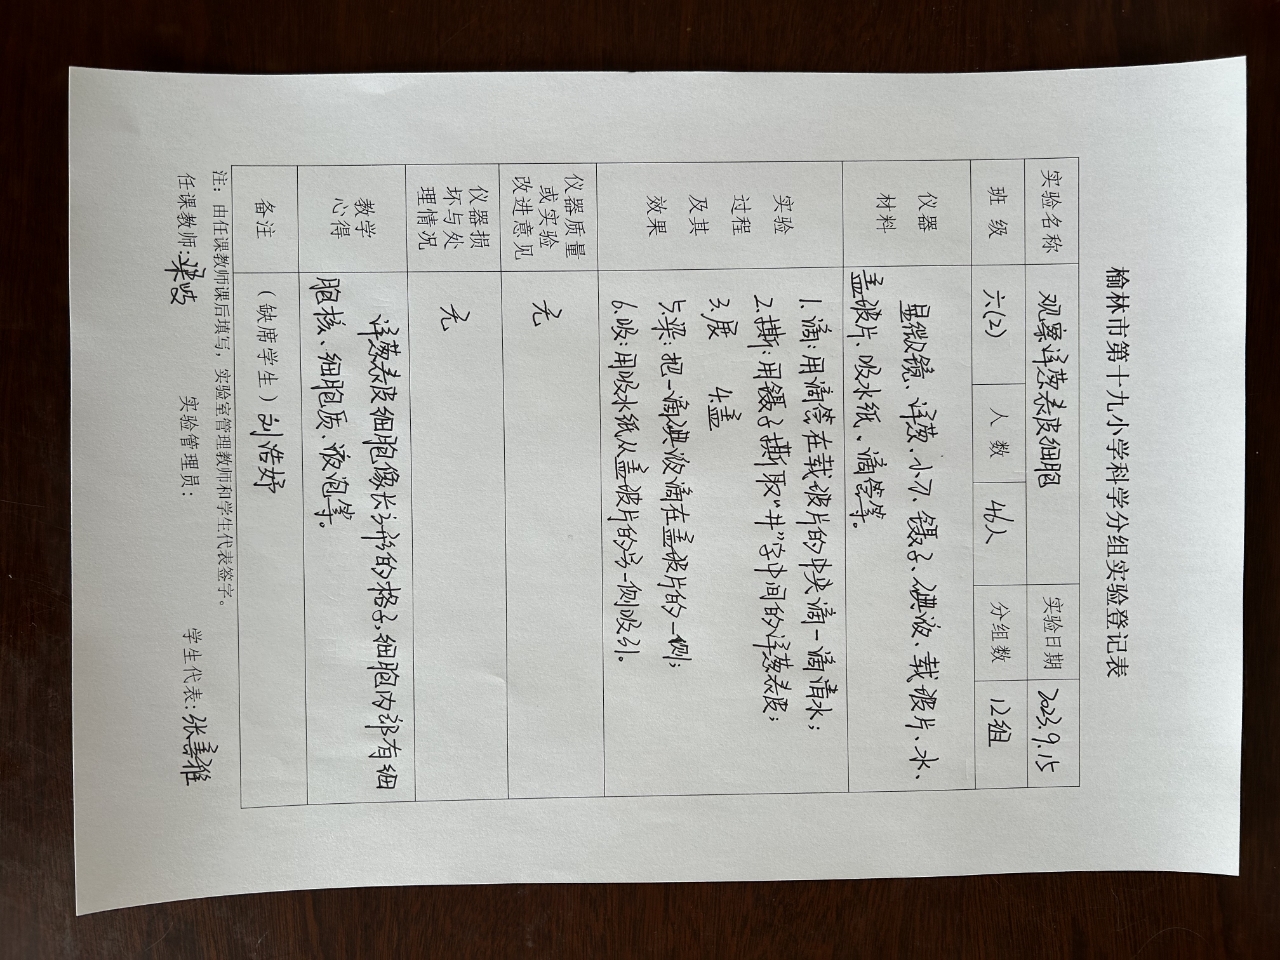 榆林市第十九小学科学分组实验登记表
实验名称 观察洋葱表皮细胞 实验日期 2023.9.15
班级 六(2) 人数 46人 分组数 12组
仪器
材料
显微镜、洋葱、小刀、镊子、碘液、载玻片、水、
盖玻片、吸水纸、滴管等。
实验
过程
及其
效果
1.滴:用滴管在载玻片的中央滴一滴清水;
2.撕:用镊子撕取“井”字中间的洋葱表皮;
3.展 4.盖
5.染:把一滴碘液滴在盖玻片的一侧;
6.吸:用吸水纸从盖玻片的另一侧吸引。
仪器质量
或实验
改进意见
无
仪器损
坏与处
理情况
无
教学
心得
洋葱表皮细胞像长方形的格子,细胞内部有细
胞核、细胞质、液泡等。
备注 (缺席学生)刘浩妤
注:由任课教师课后填写,实验室管理教师和学生代表签字。
任课教师:梁 实验管理员: 学生代表:张善雅